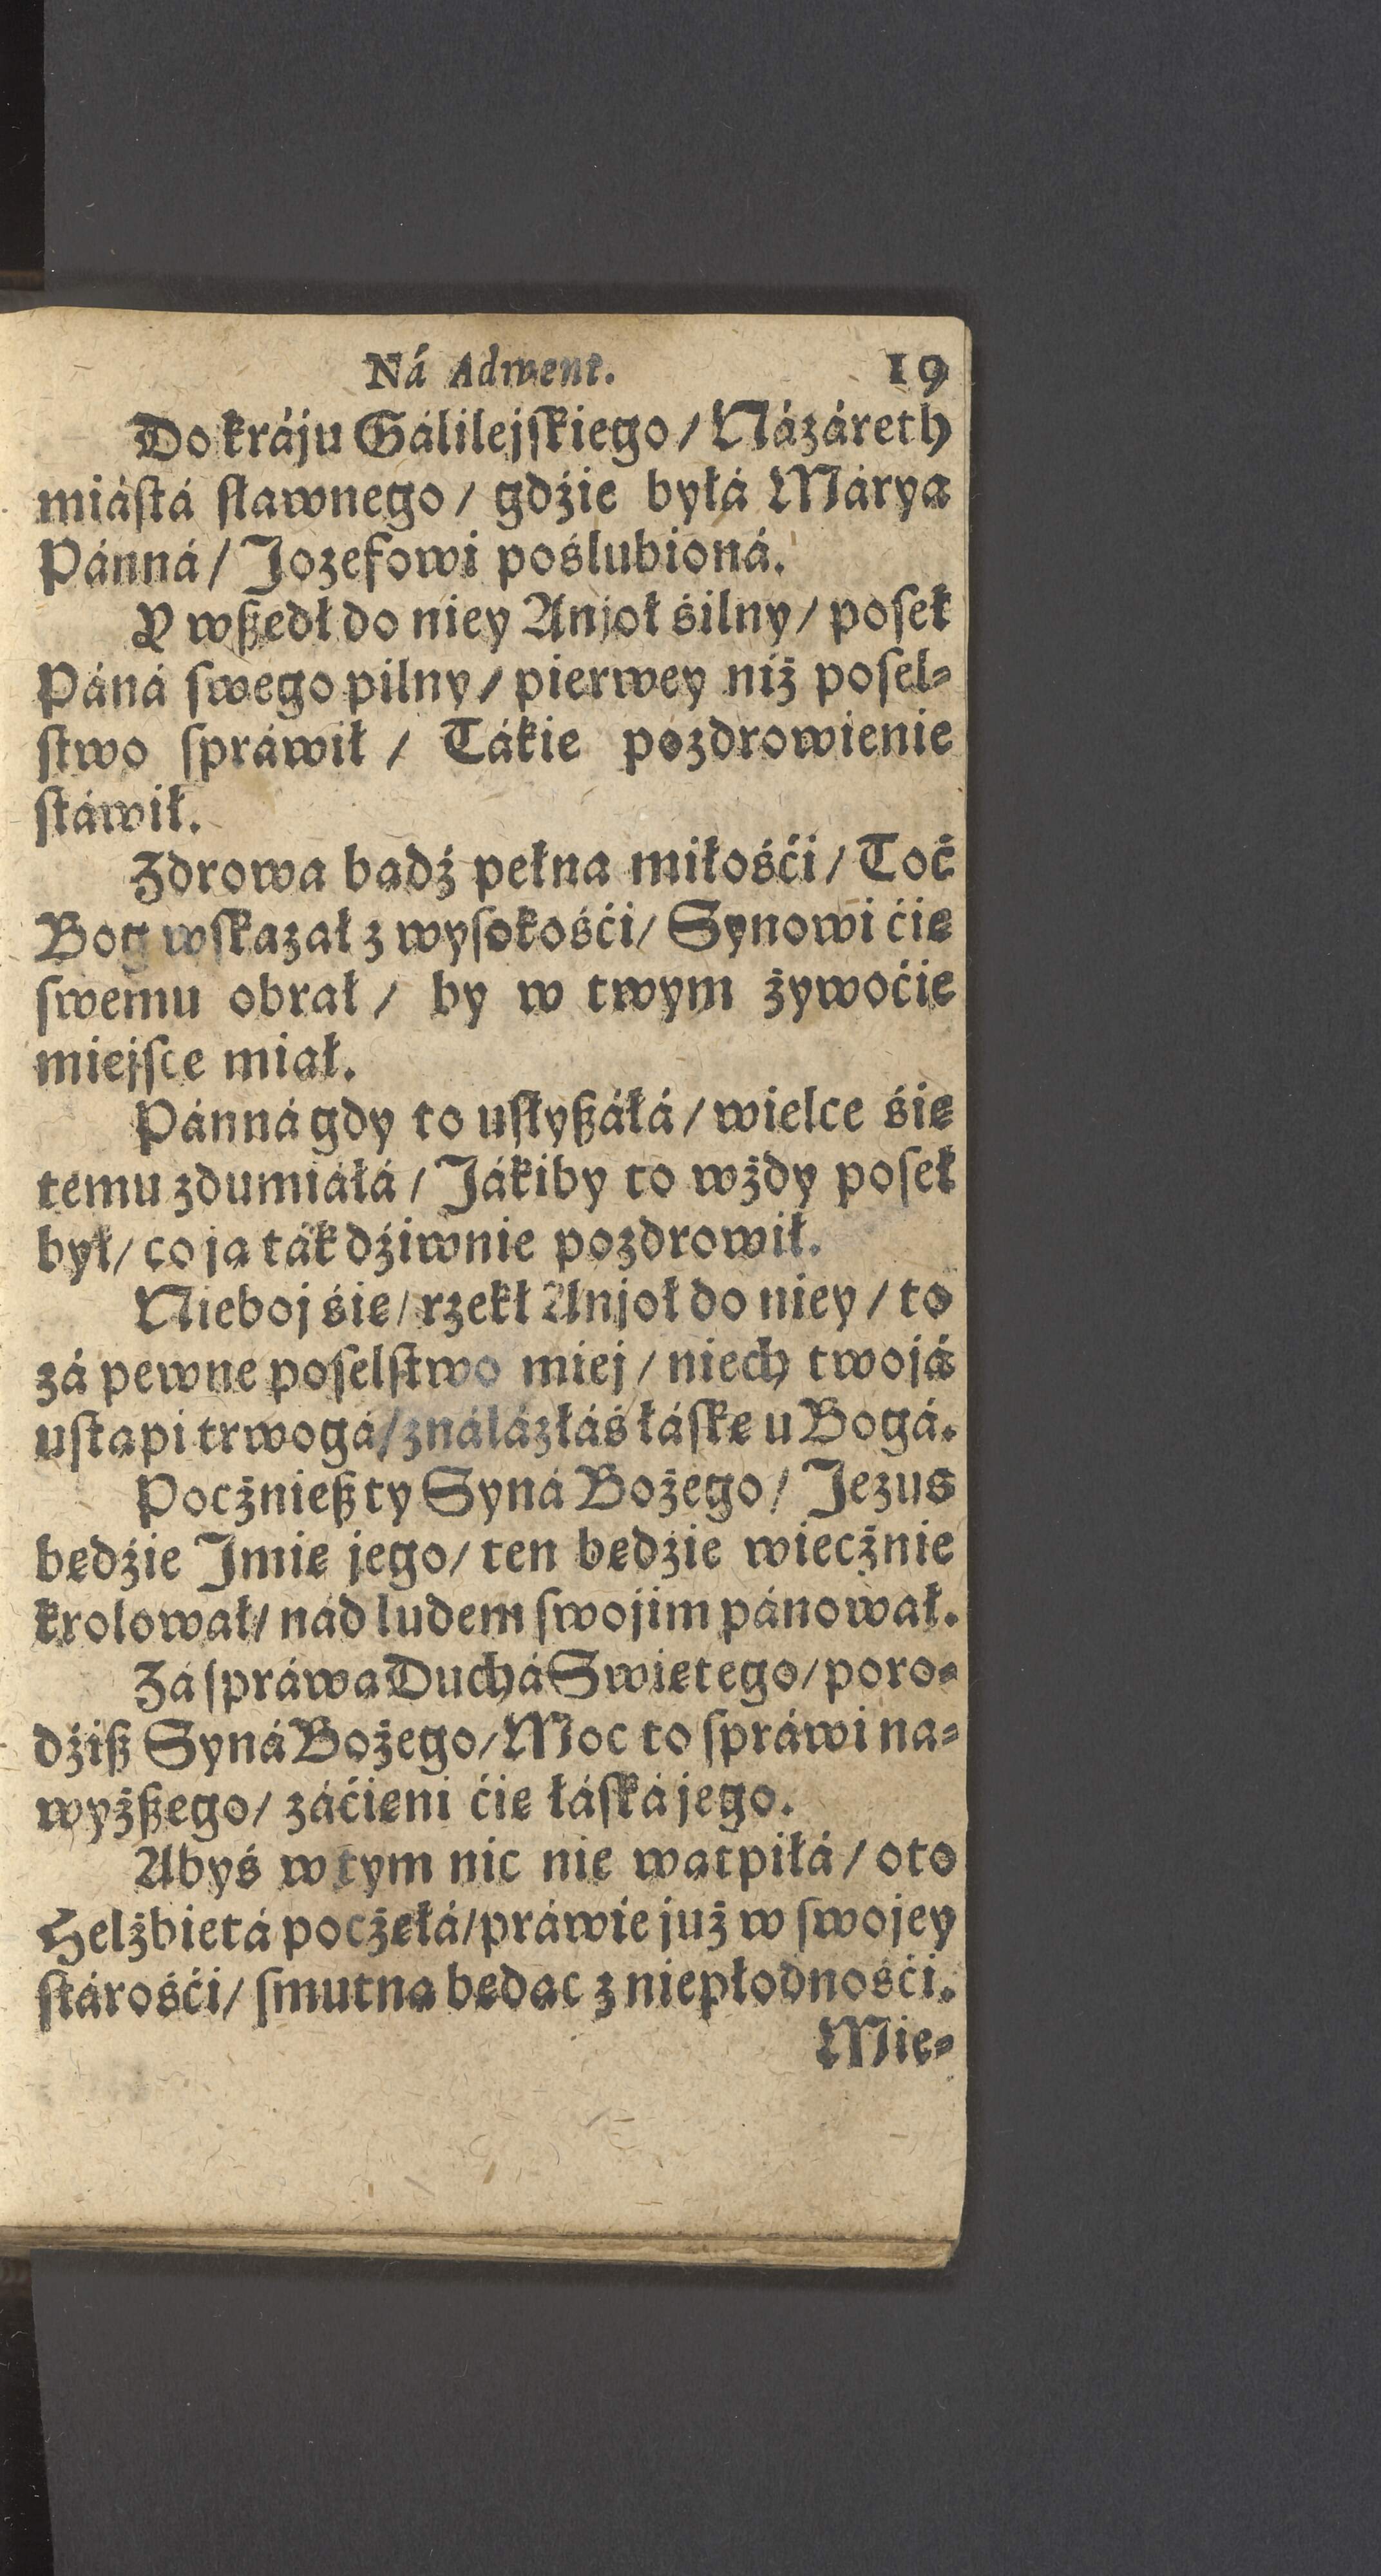 Ná Adwent. 19
Do kráju Gálilejſkiego / Názáreth
miáſtá ſławnego / gdźie byłá Márya
Pánná / Jozefowi poślubioná.
Y wßedł do niey Anjoł śilny / poſeł
Páná ſwego pilny / pierwey niż poſel⸗
ſtwo ſpráwił / Tákie pozdrowienie
ſtáwił.
Zdrowa badź pełna miłośći / Toć
Bog wſkazał z wyſokośći / Synowi ćię
ſwemu obrał / by w twym żywoćie
miejſce miał.
Pánná gdy to uſłyßáłá / wielce śię
temu zdumiáłá / Jákiby to wżdy poſeł
był / co ja ták dźiwnie pozdrowił.
Nieboj śię / rzekł Anjoł do niey / to
zá pewne poſelſtwo miej / niech twojá
uſtapi trwogá / ználázłáś łáſkę u Bogá.
Pocżnieß ty Syná Bożego / Jezus
będźie Jmię jego / ten będźie wiecżnie
krolował / nád ludem ſwojim pánował.
Zá ſpráwa Duchá Swiętego / poro⸗
dźiß Syná Bożego / Moc to ſpráwi na⸗
wyżßego / záćieni ćię łáſká jego.
Abyś w tym nic nie watpiłá / oto
Helżbietá pocżęłá / práwie już w ſwojey
ſtárośći / ſmutna będac z niepłodnośći.
Mie⸗